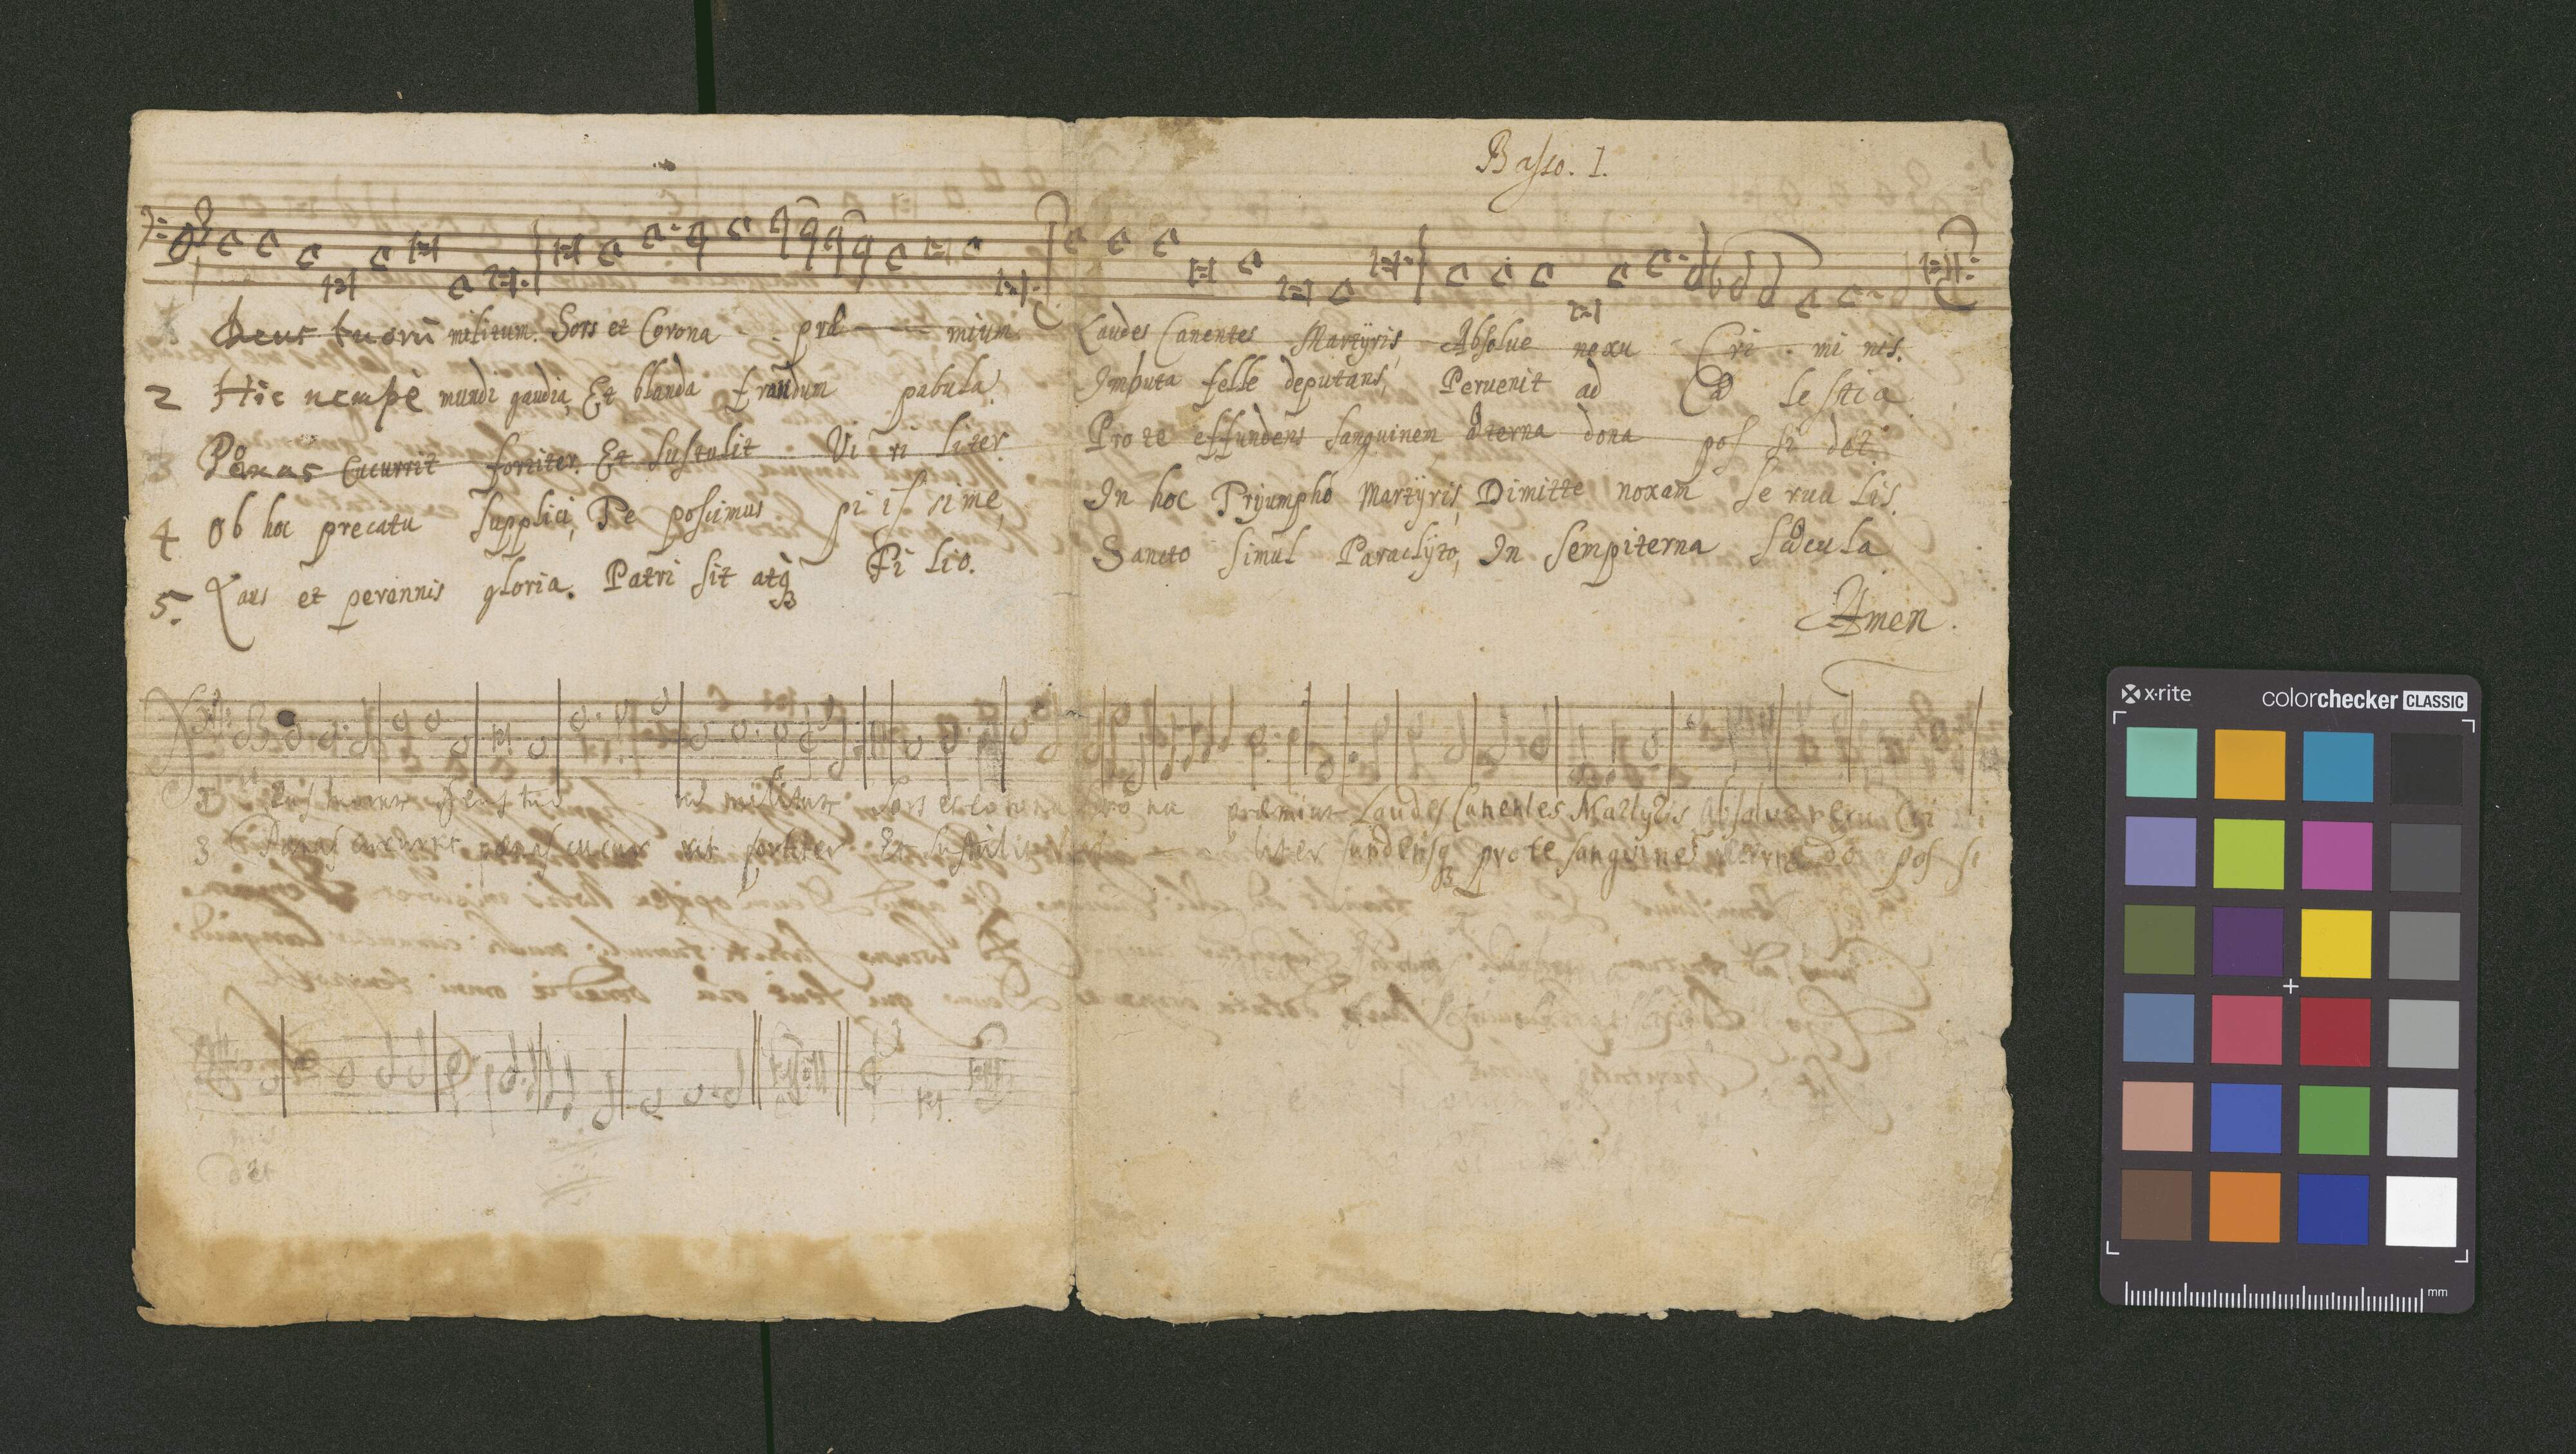 Basso. I.
Deus tuorū militum. Sors et Corona prae mium Laudes Canentes Martÿris, Absolue nexu Cri mi nis.
2 Hic nempè mundi gaudia, Et blanda fraudum pabula. Imbuta felle deputans, Peruenit ad Cae lestia
Poenas Cucurrit fortiter. Et sustulit Vi ri liter. Pro te effundens sanguinem aeterna dona pos si det.
4 Ob hoc precatu supplici, Te poscimus pi is sime, In hoc Trÿumpho Martÿris, Dimitte noxam se ruu lis.
5. Laus et perennis gloria. Patri sit atq́ꝫ Fi lio. Sancto simul Paraclÿto, In sempiterna saecula
Amen.
militum Sors et corona ro na praemium Laudes Canentes Martyris Absolve nexu Cri i
3 Paenas cucurrit paenas cucur rit fortiter Et sustulit liter fundensqꝫ pro te sanguinē aeterna do pos si
det
x-rite colorchecker CLASSIC
mm